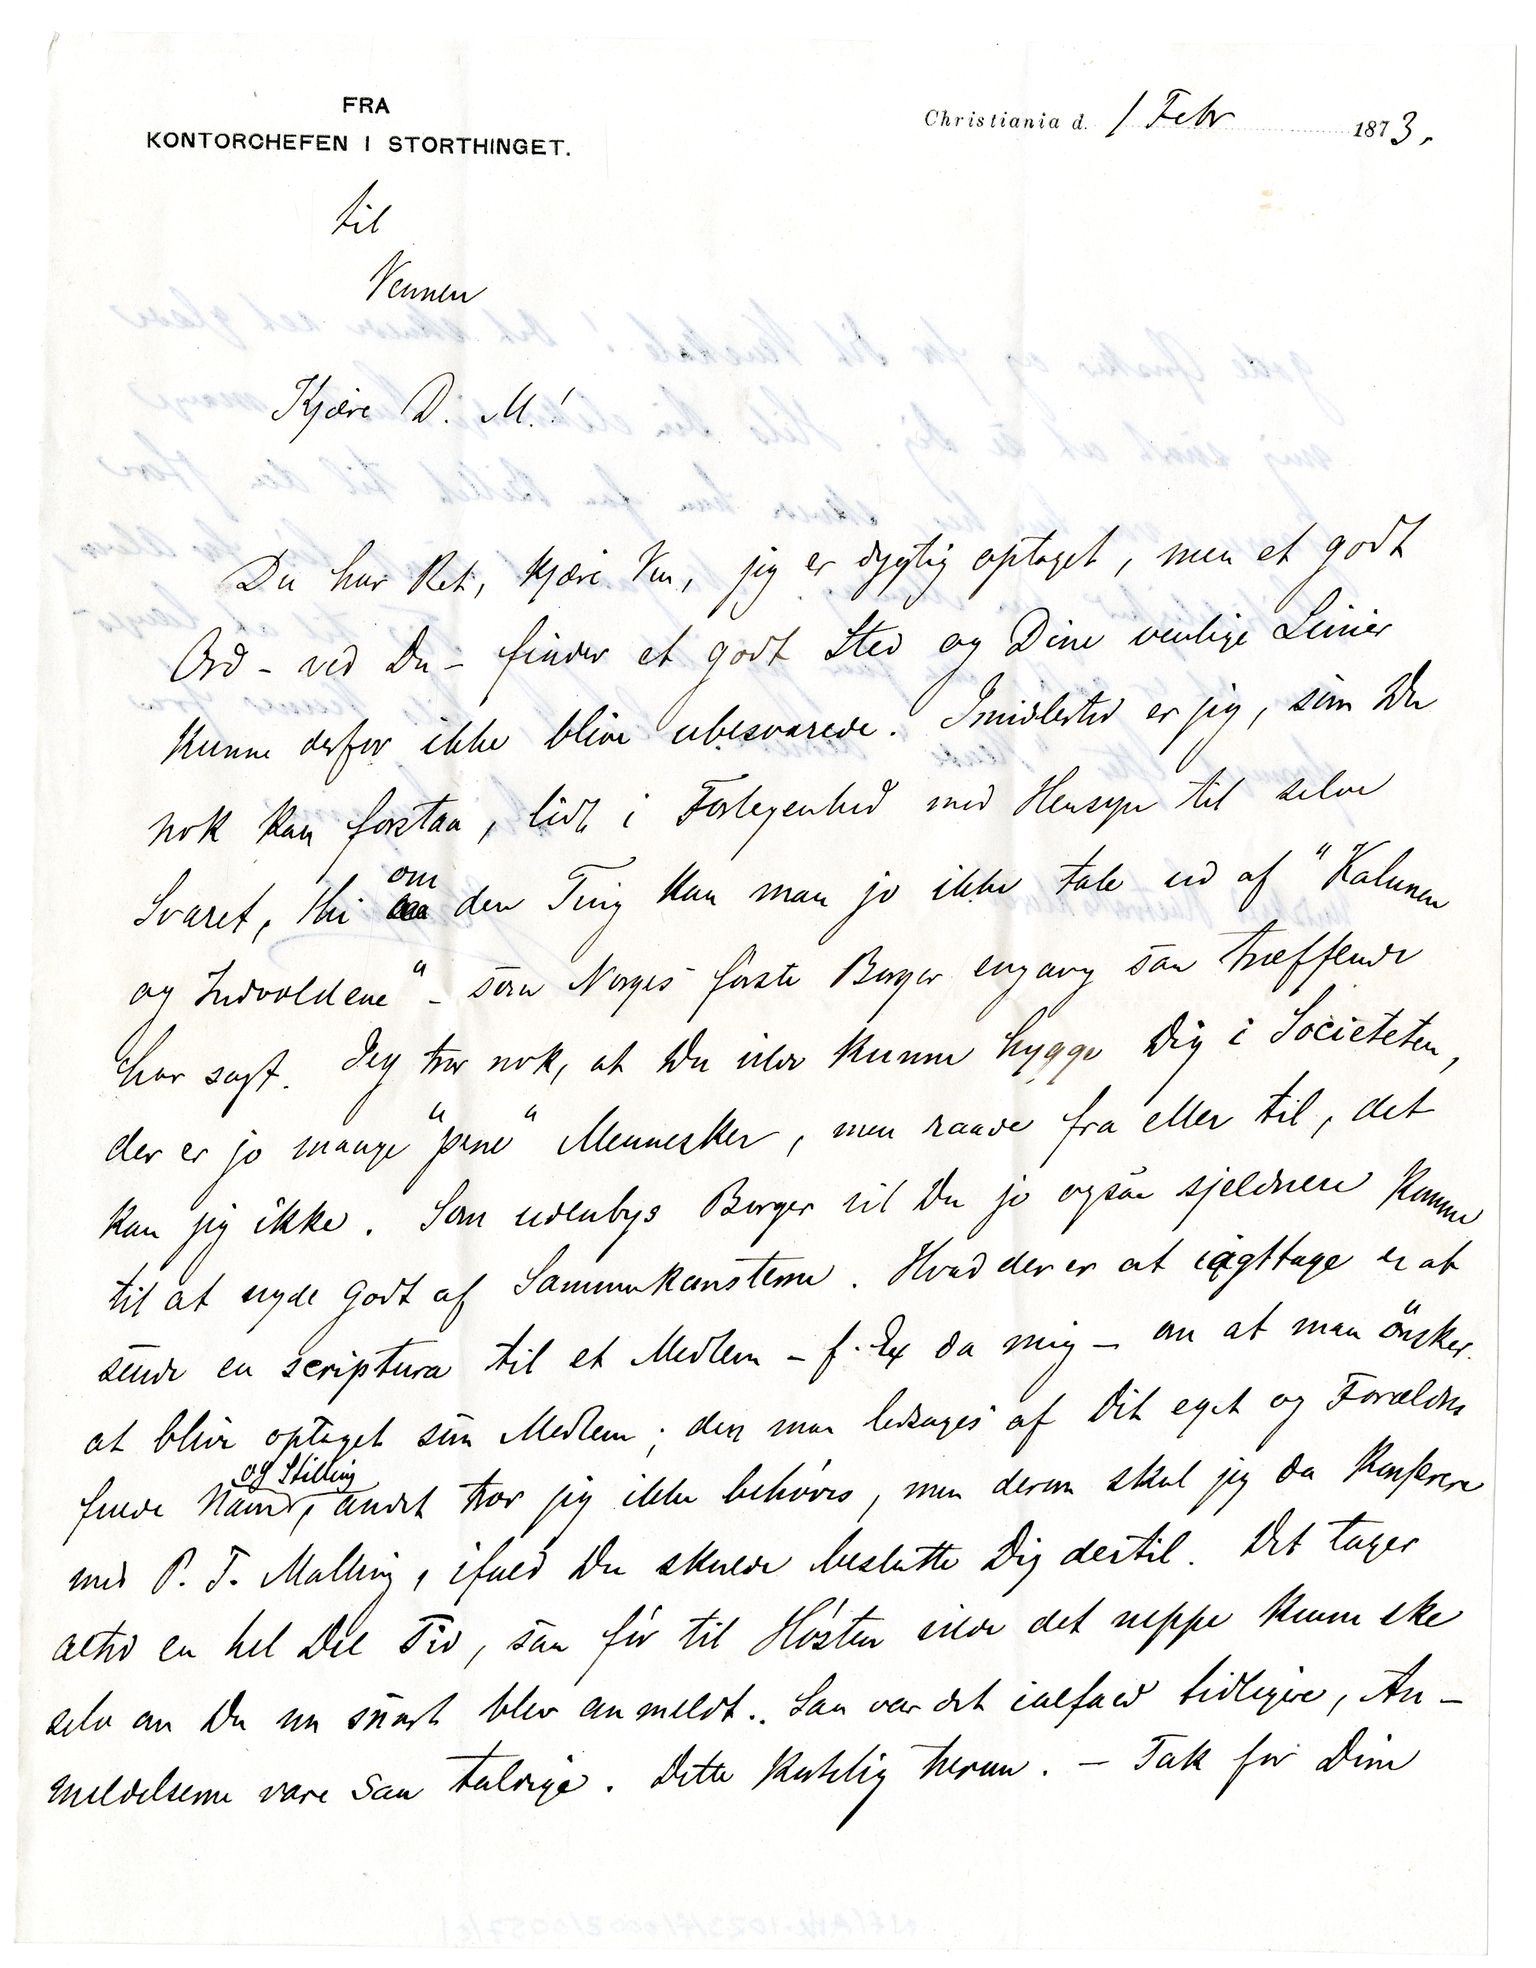 FRA
KONTORCHEFEN I STORTHINGET.
Christiania d. 1 Febr 1873.
til
Vennen
Kjære D. M.!
Du har Ret, kjære Ven, jeg er dygtig optaget, men et godt
Ord – ved Du – finder et godt Sted og Dine venlige Linier
kunne derfor ikke blive ubesvarede. Imidlertid er jeg, som Du
nok kan forstaa, lidt i Forlegenhed med Hensyn til selve
Svaret, thi om den Ting kan man jo ikke tale ud af "Kalunen
og Indvoldene" – som Norges første Borger engang saa træffende
har sagt. Jeg tror nok, at Du vilde kunne hygge Dig i Societeten,
der er jo mange "pene" Mennesker, men raade fra eller til, det
kan jeg ikke. Som udenbys Borger vil Du jo også sjeldnere komme
til at nyde godt af Sammenkomsterne. Hvad der er at iagttage er at
sende en scriptura til et Medlem – f. Ex da mig – om at man ønsker
at blive optaget som Medlem; den maa ledsages af Dit eget og Forældres
fulde Navn og Stilling, andet tror jeg ikke behøves, men derom skal jeg da konferere
med P. T. Malling, ifald Du skulde beslutte Dig dertil. Det tager
altid en hel Del Tid, saa før til Høsten vilde det neppe kunne ske
selv om Du nu snart blev anmeldt. Saa var det ialfald tidligere, An-
meldelserne vare saa talrige. Dette herom. – Tak for Dine